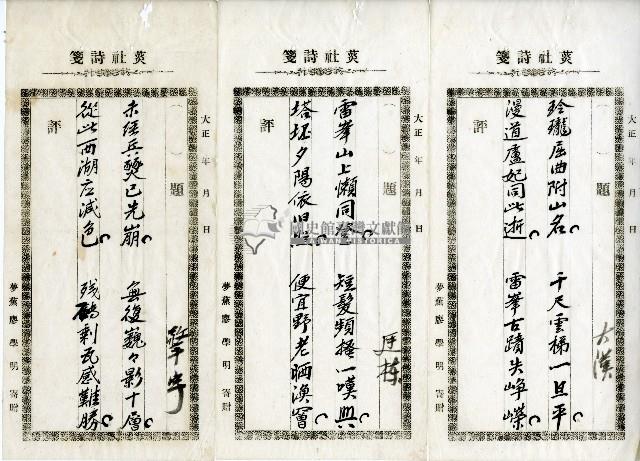 莢社詩箋
大正 年 月 日
( ) 題
玲瓏屈曲附山名 千尺雲梯一旦平
漫道盧妃同此逝 雷峯古蹟失崢嶸
大漢
評
夢蕉廖學明寄贈
莢社詩箋
大正 年 月 日
( ) 題
雷峯山上懶同登 短髮頻搔一嘆興
塔圮夕陽依旧照 便宜野老晒漁罾
廷棟
評
夢蕉廖學明寄贈
莢社詩箋
大正 年 月 日
( ) 題
未經兵燹已先崩 無復巍々影十層
從此西湖應減色 残磚剩瓦感難勝
評
夢蕉廖學明寄贈
國史館臺灣文獻館
TAIWAN HISTORICA